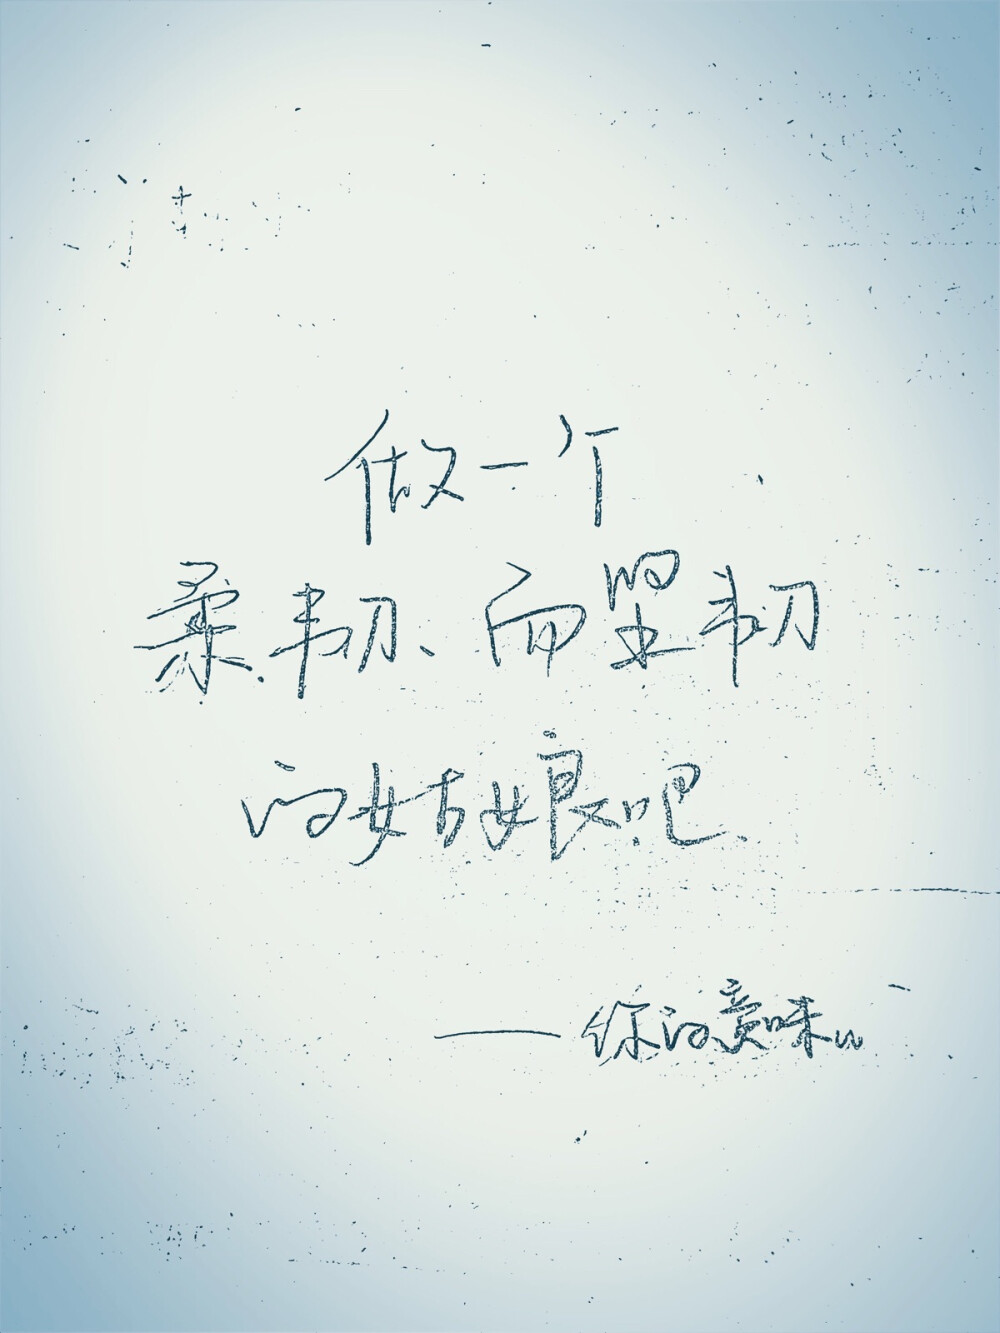 做一个
柔韧、而坚韧
的姑娘吧、
——你的意味